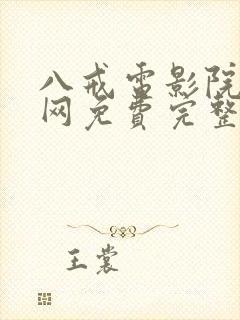 八戒雷影院
网免费完整
王裳